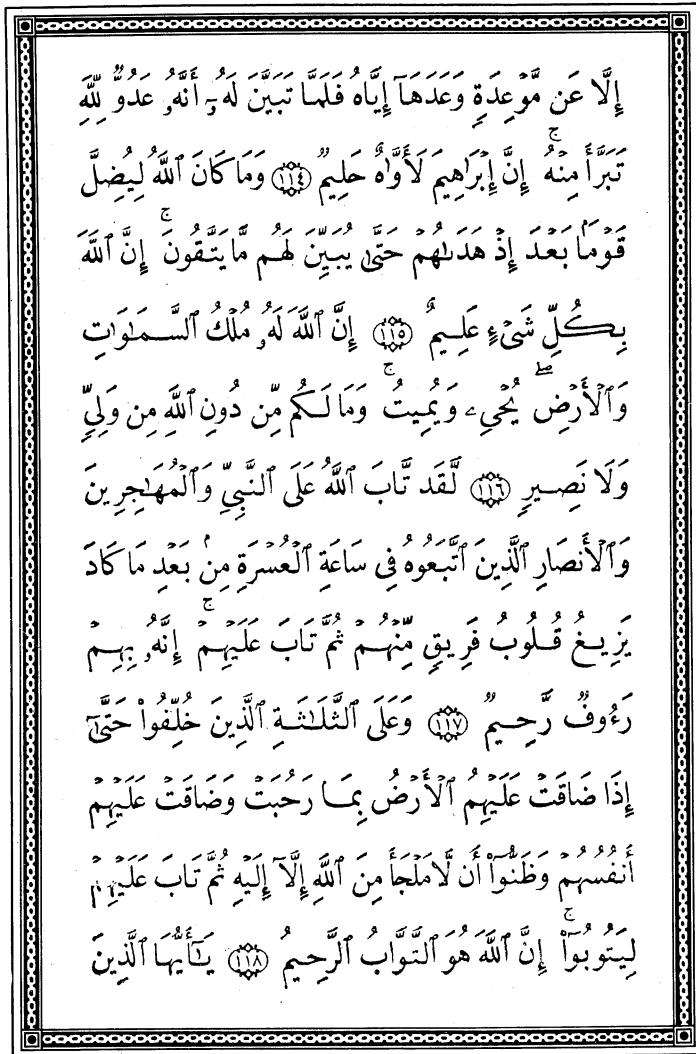 إِلَّا عَن مَّوْعِدَةٍ وَعَدَهَآ إِيَّاهُ فَلَمَّا تَبَيَّنَ لَهُۥٓ أَنَّهُۥ عَدُوٌّ لِّلَّهِ
تَبَرَّأَ مِنْهُ ۚ إِنَّ إِبْرَٰهِيمَ لَأَوَّٰهٌ حَلِيمٌ ﴿١١٤﴾ وَمَا كَانَ ٱللَّهُ لِيُضِلَّ
قَوْمًۢا بَعْدَ إِذْ هَدَىٰهُمْ حَتَّىٰ يُبَيِّنَ لَهُم مَّا يَتَّقُونَ ۚ إِنَّ ٱللَّهَ
بِكُلِّ شَىْءٍ عَلِيمٌ ﴿١١٥﴾ إِنَّ ٱللَّهَ لَهُۥ مُلْكُ ٱلسَّمَٰوَٰتِ
وَٱلْأَرْضِ ۖ يُحْىِۦ وَيُمِيتُ ۚ وَمَا لَكُم مِّن دُونِ ٱللَّهِ مِن وَلِىٍّ
وَلَا نَصِيرٍ ﴿١١٦﴾ لَّقَد تَّابَ ٱللَّهُ عَلَى ٱلنَّبِىِّ وَٱلْمُهَٰجِرِينَ
وَٱلْأَنصَارِ ٱلَّذِينَ ٱتَّبَعُوهُ فِى سَاعَةِ ٱلْعُسْرَةِ مِنۢ بَعْدِ مَا كَادَ
يَزِيغُ قُلُوبُ فَرِيقٍ مِّنْهُمْ ثُمَّ تَابَ عَلَيْهِمْ ۚ إِنَّهُۥ بِهِمْ
رَءُوفٌ رَّحِيمٌ ﴿١١٧﴾ وَعَلَى ٱلثَّلَٰثَةِ ٱلَّذِينَ خُلِّفُوا۟ حَتَّىٰٓ
إِذَا ضَاقَتْ عَلَيْهِمُ ٱلْأَرْضُ بِمَا رَحُبَتْ وَضَاقَتْ عَلَيْهِمْ
أَنفُسُهُمْ وَظَنُّوٓا۟ أَن لَّا مَلْجَأَ مِنَ ٱللَّهِ إِلَّآ إِلَيْهِ ثُمَّ تَابَ عَلَيْهِمْ
لِيَتُوبُوٓا۟ ۚ إِنَّ ٱللَّهَ هُوَ ٱلتَّوَّابُ ٱلرَّحِيمُ ﴿١١٨﴾ يَٰٓأَيُّهَا ٱلَّذِينَ